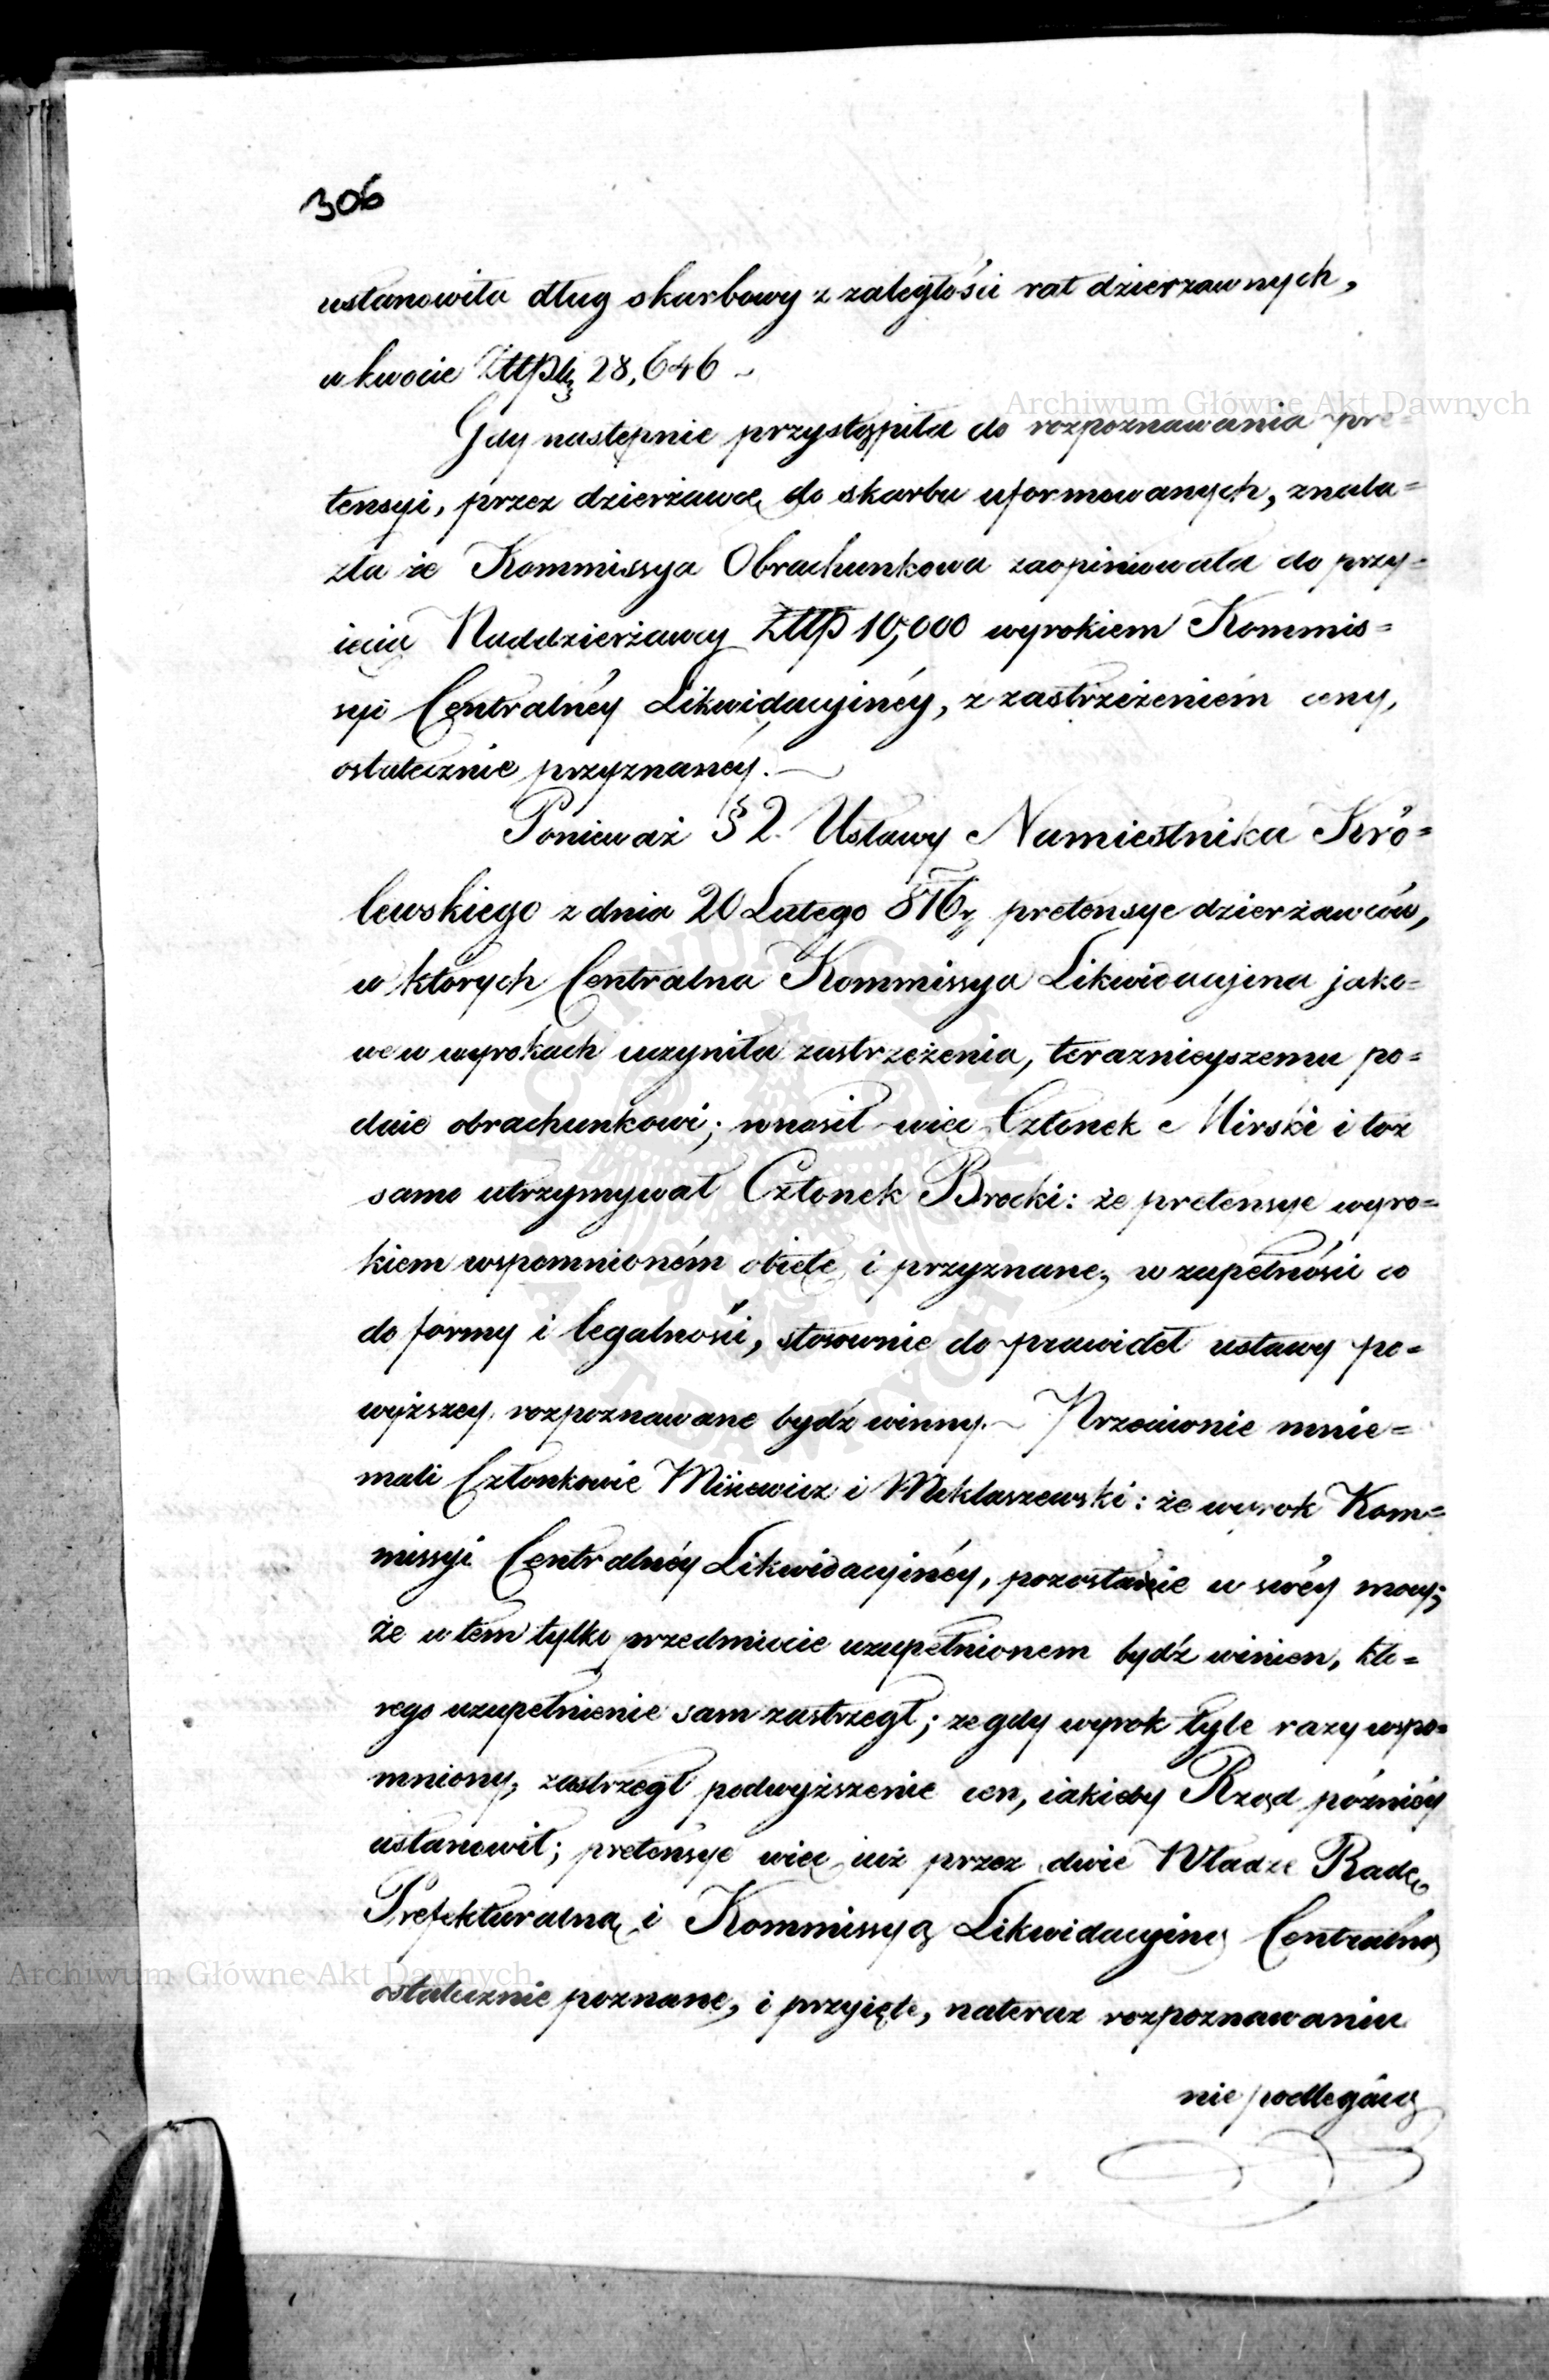 306
ustanowiła dług skarbowy z zaległości rat dzierzawnych,
w kwocie Złłpłz 28,646 ~
Archiwum Główne Akt Dawnych
Gdy nastepnie przystąpiła do rozpoznawania pre=
tensyi, przez dzierżawcę do skarbu uformowanych, znala=
zła że Kommissya Obrachunkowa zaopiniowała do przy=
ięcia Naddzierżawcy Złłp 10,000 wyrokiem Kommis=
syi Centralnéy Likwidacyinéy, z zastrzeżeniem ceny,
ostatecznie przyznanéy. ~
Ponieważ § 2. Ustawy Namiestnika Kró=
lewskiego z dnia 20 Lutego 816 r. pretensye dzierżawców,
w których Centralna Kommissya Likwidacyjna jako=
we w wyrokach uczyniła zastrzeżenia, teraznieyszemu po=
daie obrachunkowi; wnosił więc Członek Mirski i toż
samo utrzymywał Członek Brocki: że pretensye wyro=
kiem wspomnioném obięte i przyznane, w zupełności co
do formy i legalności, stosownie do prawideł ustawy po=
wyższey rozpoznawane bydź winny. ~ Przeciwnie mnie=
mali Członkowie Misiewicz i Miklaszewski: że wyrok Kom=
missyi Centralnéy Likwidacyinéy, pozostanie w swéy mocy;
że w tem tylko przedmiocie uzupełnionem bydź winien, któ=
rego uzupełnienie sam zastrzegł; że gdy wyrok tyle razy wspo=
mniony, zastrzegł podwyższenie cen, iakieby Rząd późniéy
ustanowił; pretensye więc iuż przez dwie Władze Radę
Prefekturalną i Kommissyą Likwidacyiną Centralną
Archiwum Główne Akt Dawnych
ostatecznie poznane, i przyięte, nateraz rozpoznawaniu
nie podlegáią